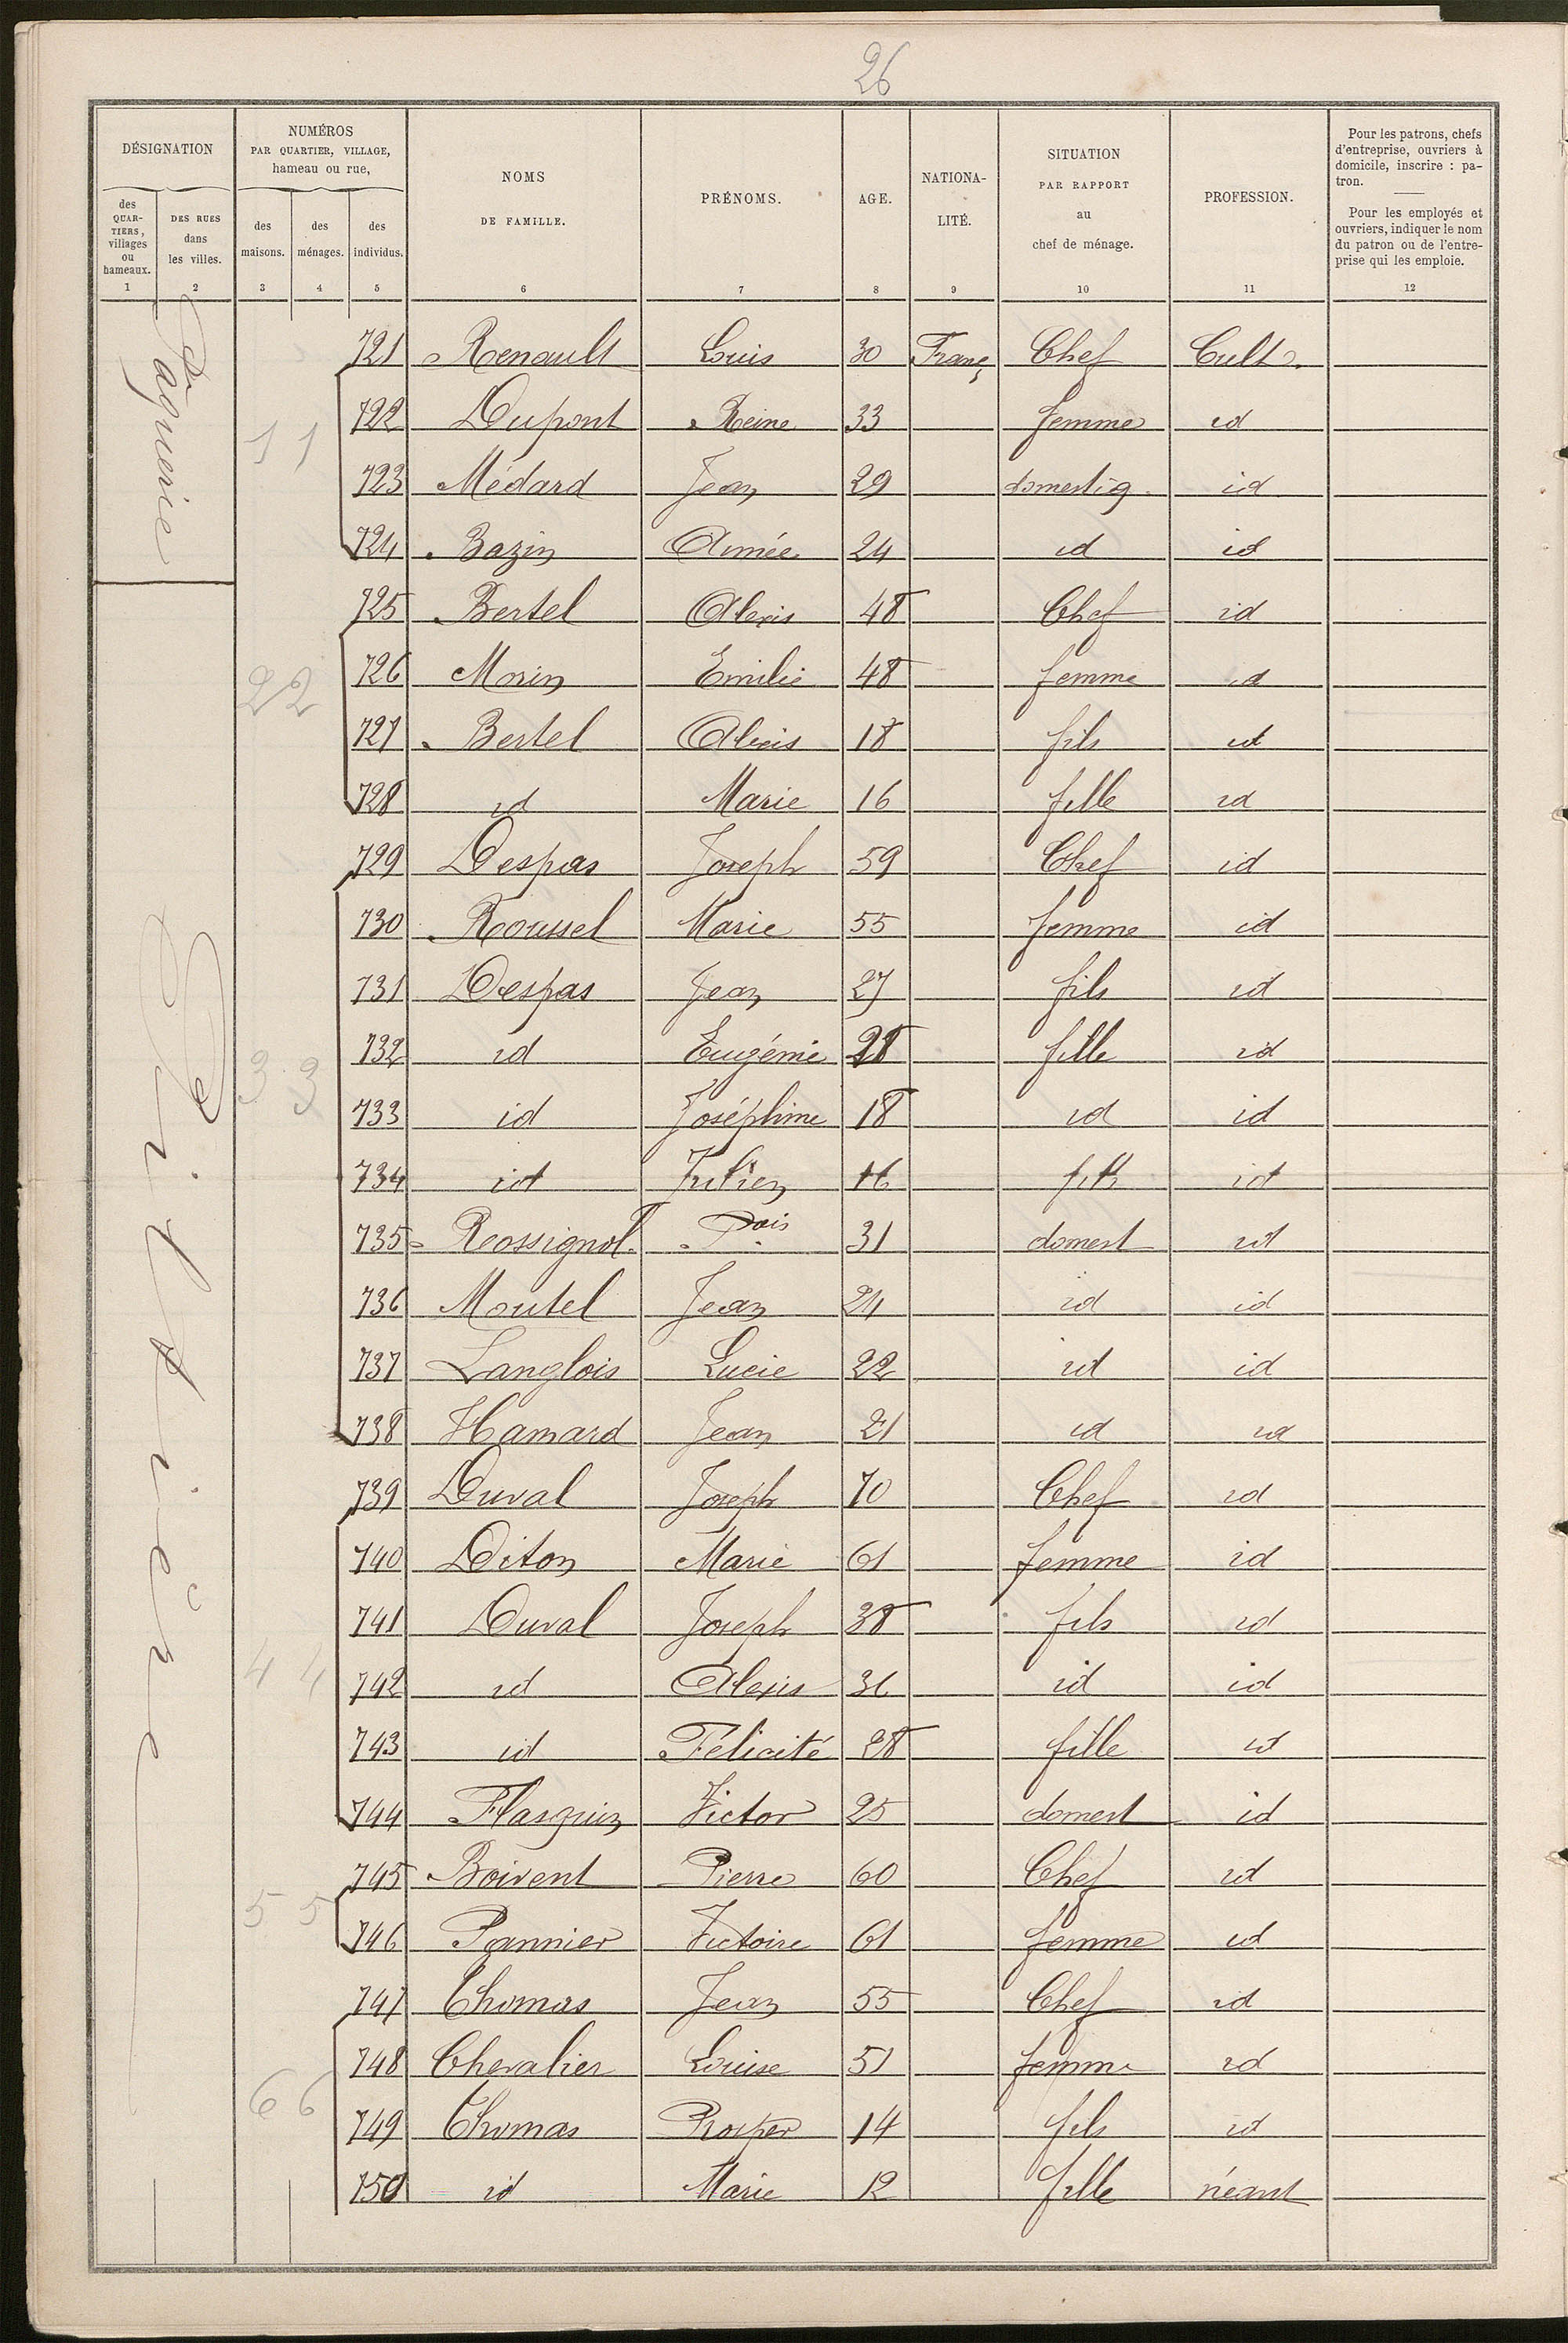 26
DÉSIGNATION
des QUARTIERS, villages ou hameaux.
1
DES RUES dans les villes.
2
NUMÉROS
PAR QUARTIER, VILLAGE,
hameau ou rue,
des maisons.
3
des ménages.
4
des individus.
5
NOMS
DE FAMILLE.
6
PRÉNOMS.
7
AGE.
8
NATIONA-
LITÉ.
9
SITUATION
PAR RAPPORT
au
chef de ménage.
10
PROFESSION.
11
Pour les patrons, chefs
d'entreprise, ouvriers à
domicile, inscrire : pa-
tron.
Pour les employés et
ouvriers, indiquer le nom
du patron ou de l'entre-
prise qui les emploie.
12
1 1
721 Renault Louis 30 Franç Chef Cult.
722 Dupont Reine 33 femme id
723 Médard Jean 29 domestiq. id
724 Bazin Aimée 24 id id
2 2
725 Bertel Alexis 48 Chef id
726 Morin Emilie 48 femme id
727 Bertel Alexis 18 fils id
728 id Marie 16 fille id
3 3
729 Despas Joseph 59 Chef id
730 Roussel Marie 55 femme id
731 Despas Jean 27 fils id
732 id Eugénie 28 fille id
733 id Joséphine 18 id id
734 id Julien 16 fils id
735 Rossignol Fois 31 domest id
736 Moutel Jean 24 id id
737 Langlois Lucie 22 id id
738 Hamard Jean 21 id id
4 4
739 Duval Joseph 70 Chef id
740 Diton Marie 61 femme id
741 Duval Joseph 38 fils id
742 id Alexis 36 id id
743 id Félicité 28 fille id
744 Victor 25 domest id
5 5
745 Boivent Pierre 60 Chef id
746 Pannier Victoire 61 femme id
6 6
747 Thomas Jean 55 Chef id
748 Chevalier Louise 51 femme id
749 Thomas Prosper 14 fils id
750 id Marie 12 fille néant